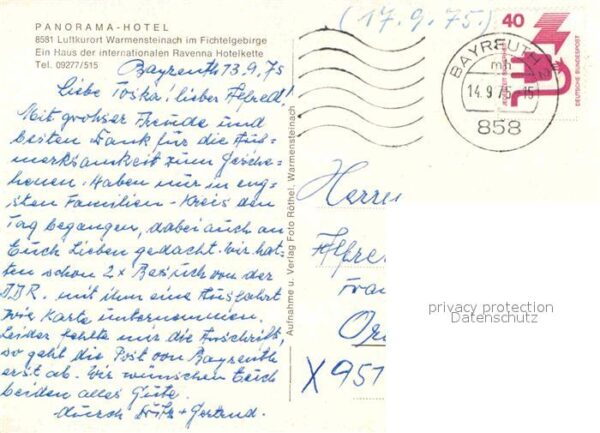 (17.9.75.)
PANORAMA-HOTEL
8581 Luftkurort Warmensteinach im Fichtelgebirge
Ein Haus der internationalen Ravenna Hotelkette
Tel. 09277/515
40
DEUTSCHE BUNDESPOST
BAYREUTH
mh
14.9.75-15
858
Bayreuth 13.9.75
Liebe Toska! lieber Alfred!
Mit grohser Freude und
besten Dank für die Auf-
merksamkeit zum Gesche-
henen. Haben nur in eng-
sten Familien-Kreis den
Tag begangen, dabei auch an
Euch Lieben gedacht. Wir hat-
ten schon 2x Besuch von der
DDR. mit ihm eine Ausfahrt
wie Karte unternommen.
Leider fehlte mir die Anschrift,
so geht die Post von Bayreuth
erst ab. Wir wünschen Euch
beiden alles Gute.
durch + Gertrud.
Aufnahme u. Verlag Foto Röthel, Warmensteinach
Herrn
Alfre
X 951
privacy protection
Datenschutz